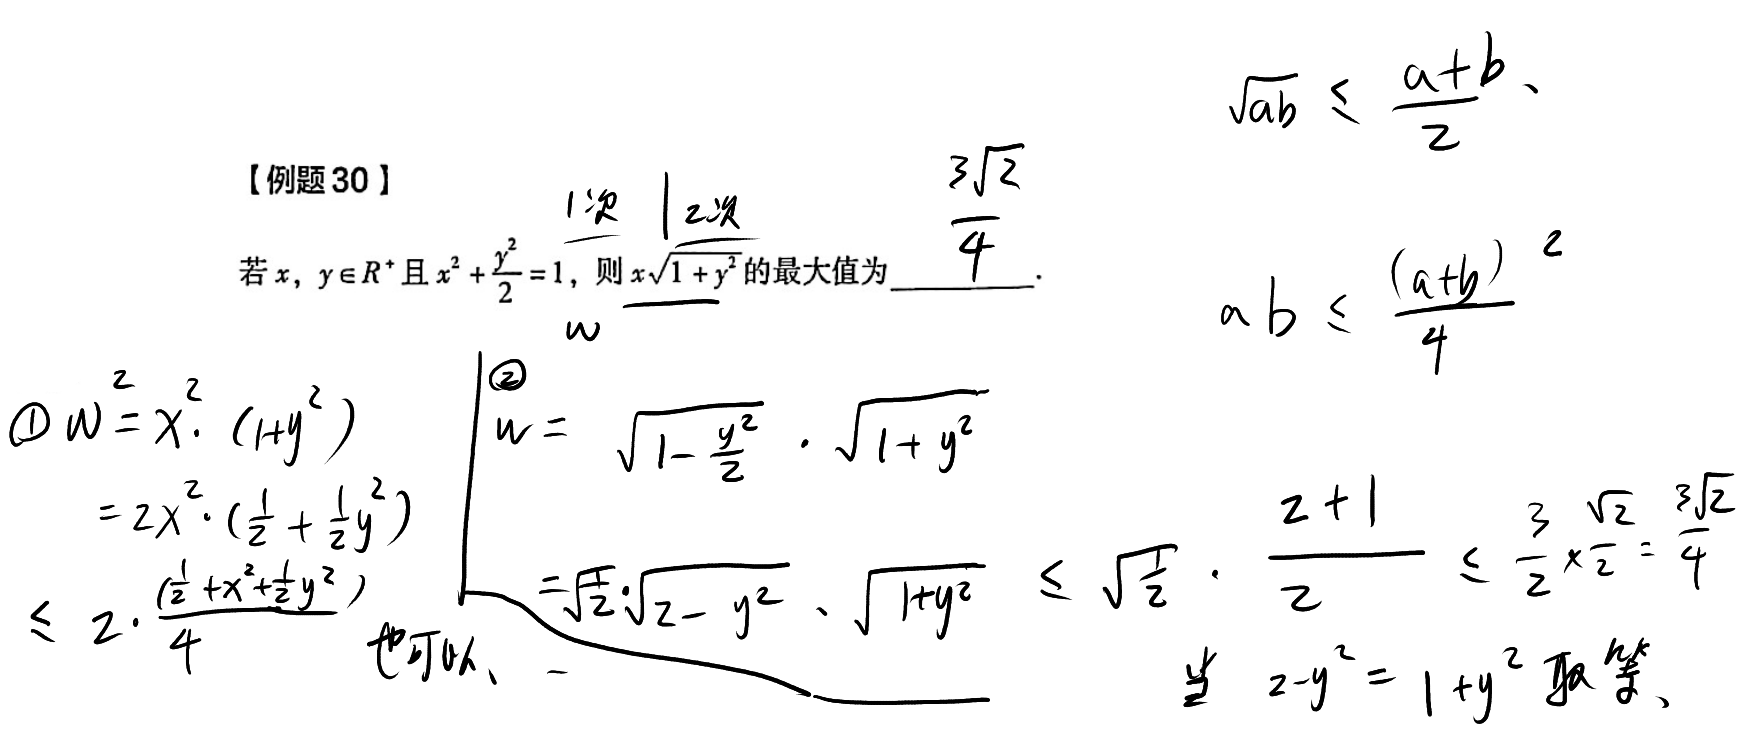 √ab ≤ (a+b)/2、
【例题30】
1次 | 2次
3√2/4
若 x，y∈R⁺且 x² + y²/2 = 1，则 x√(1 + y²)的最大值为______.
w
ab ≤ (a+b)²/4
① W² = x²·(1+y²)
= 2x²·(1/2 + 1/2y²)
≤ 2·(1/2+x²+1/2y²)/4
也可以、
②
w = √(1-y²/2) · √(1+y²)
= √(1/2)·√(2-y²)、√(1+y²) ≤ √(1/2) · (2+1)/2 ≤ 3/2 × √2/2 = 3√2/4
当 2-y² = 1+y² 取等、